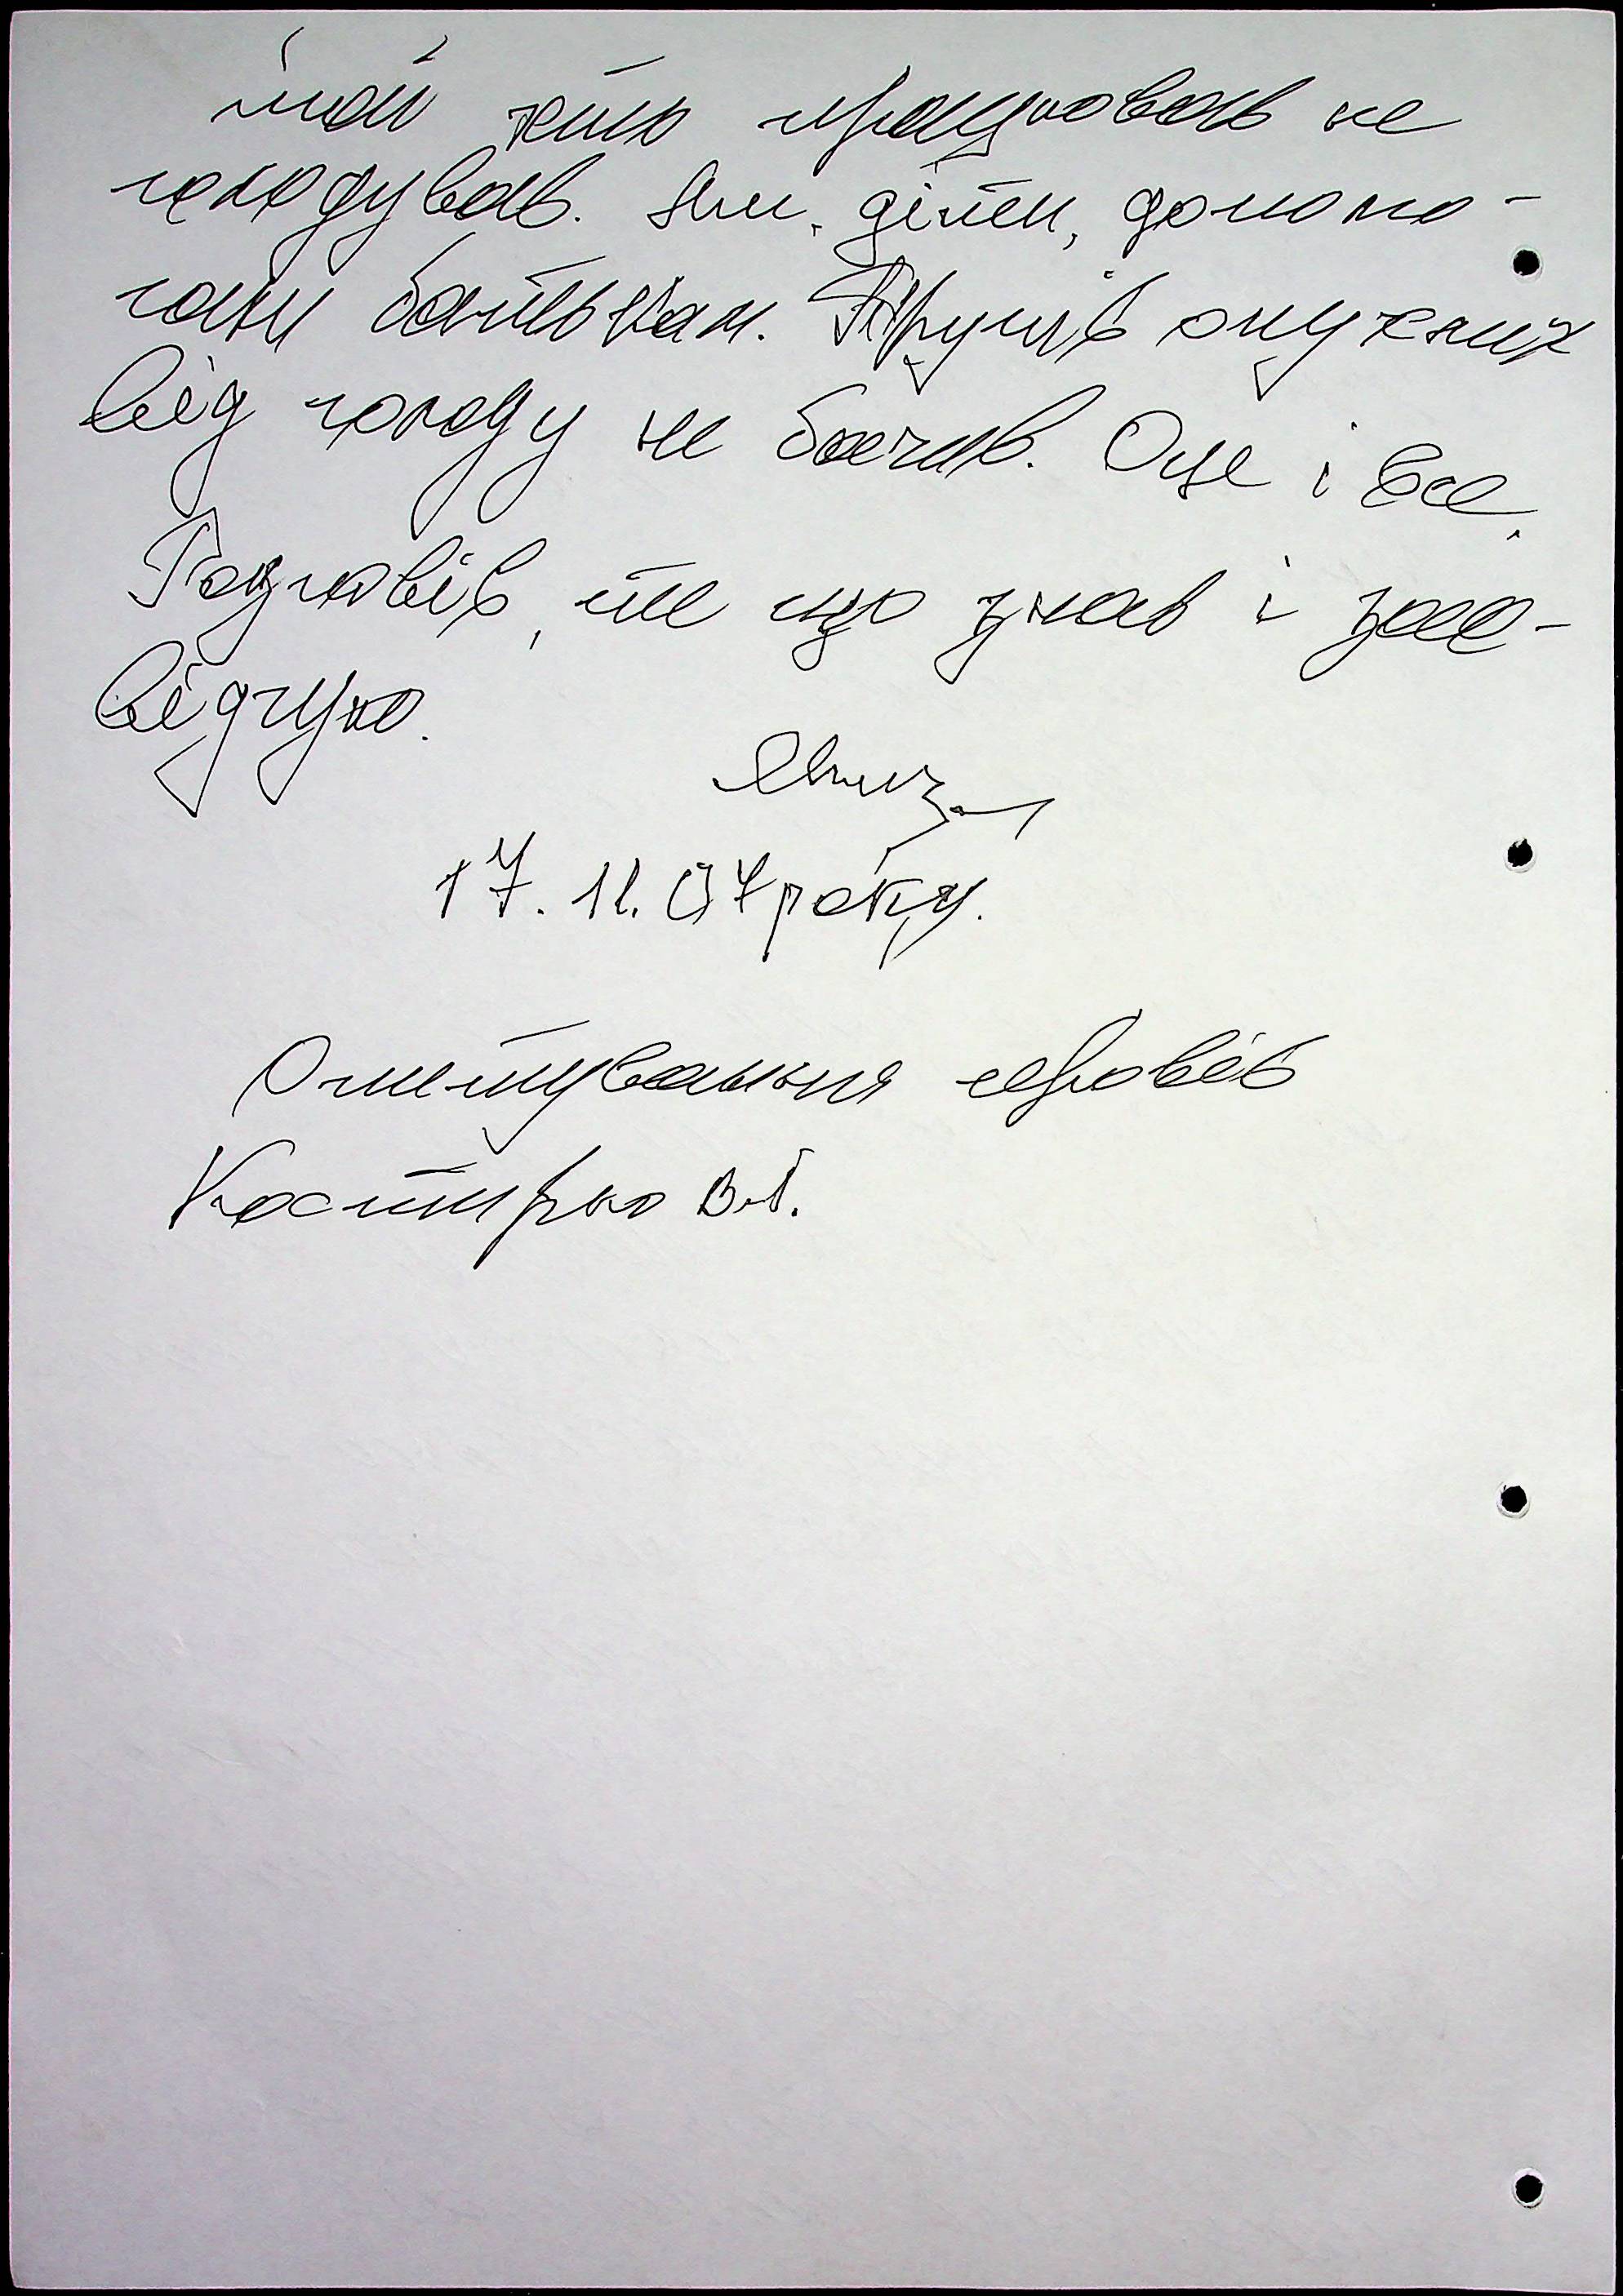 той хто працював не
голодував. Ми, діти, допома-
гали батькам. Трупів опухших
від голоду не бачив. Оце і все.
Розповів, те що знав і зас-
відчую.
17. 11. 07 року.
Опитування провів
Костирко В.І.